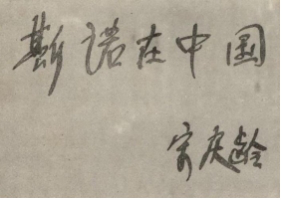 斯诺在中国
宋庆龄